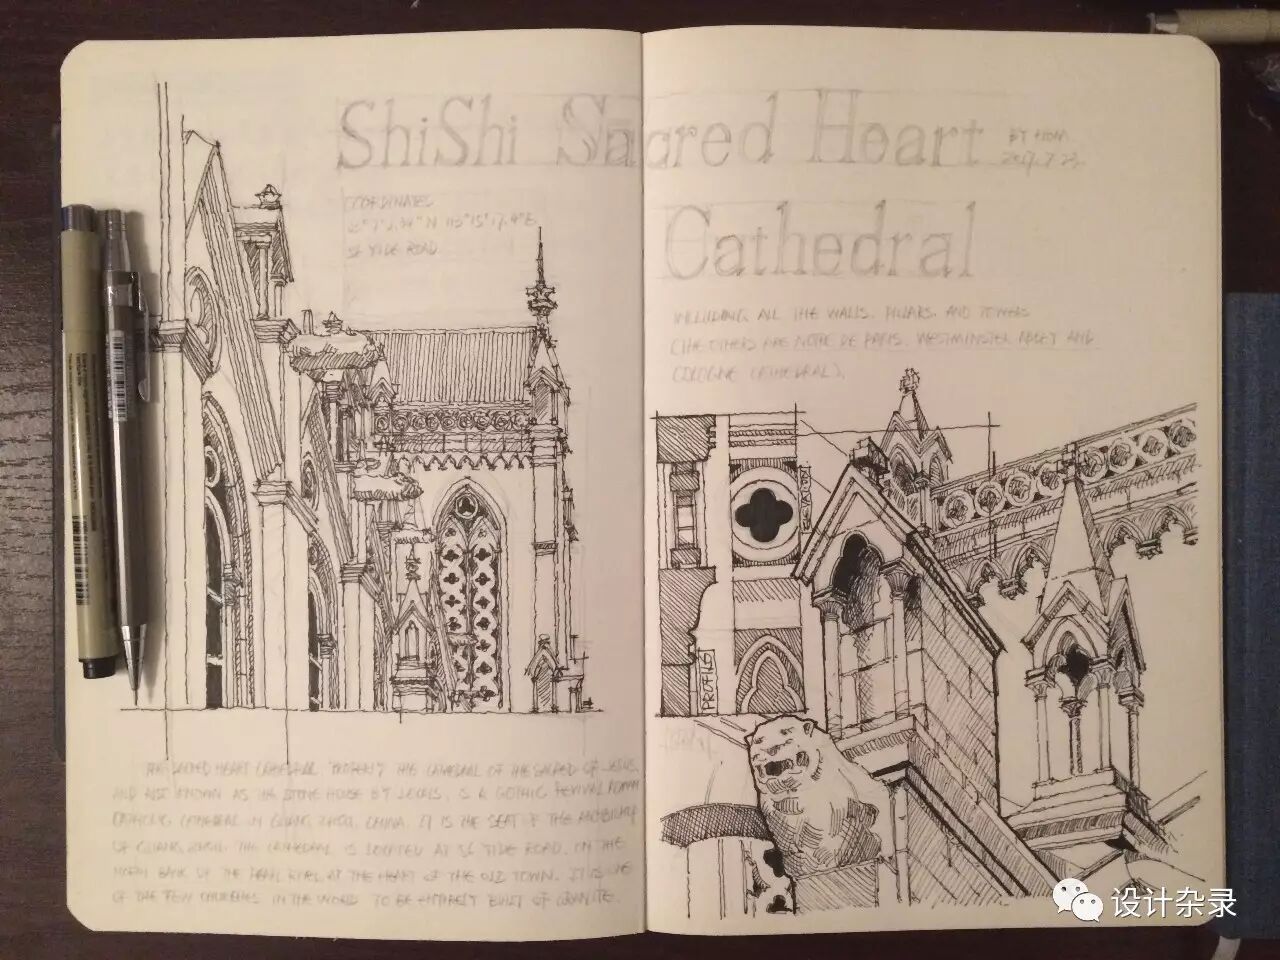 ShiShi Sacred Heart
BY HOM
2017.7.23
Cathedral
COORDINATES
56 YIDE ROAD
INCLUDING ALL THE WALLS, PILLARS, AND TOWERS
(THE OTHERS ARE NOTRE DE PARIS, WESTMINSTER ABBEY AND
COLOGNE CATHEDRAL).
PROFILE
PROFILE
THE SACRED HEART CATHEDRAL PROPERLY THE CATHEDRAL OF THE SACRED OF JESUS,
AND ALSO KNOWN AS THE STONE HOUSE BY LOCALS, IS A GOTHIC REVIVAL ROMAN
CATHOLIC CATHEDRAL IN GUANGZHOU, CHINA. IT IS THE SEAT OF THE ARCHBISHOP
OF GUANGZHOU. THE CATHEDRAL IS LOCATED AT 56 YIDE ROAD, ON THE
NORTH BANK OF THE PEARL RIVER, AT THE HEART OF THE OLD TOWN. IT IS ONE
OF THE FEW CHURCHES IN THE WORLD TO BE ENTIRELY BUILT OF GRANITE,
设计杂录